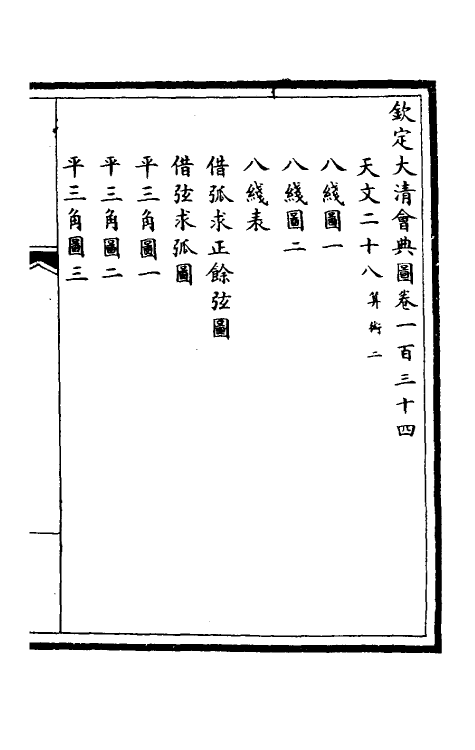 欽定大清會典圖卷一百三十四
天文二十八算術二
八綫圖一
八綫圖二
八綫表
借弧求正餘弦圖
借弦求弧圖
平三角圖一
平三角圖二
平三角圖三